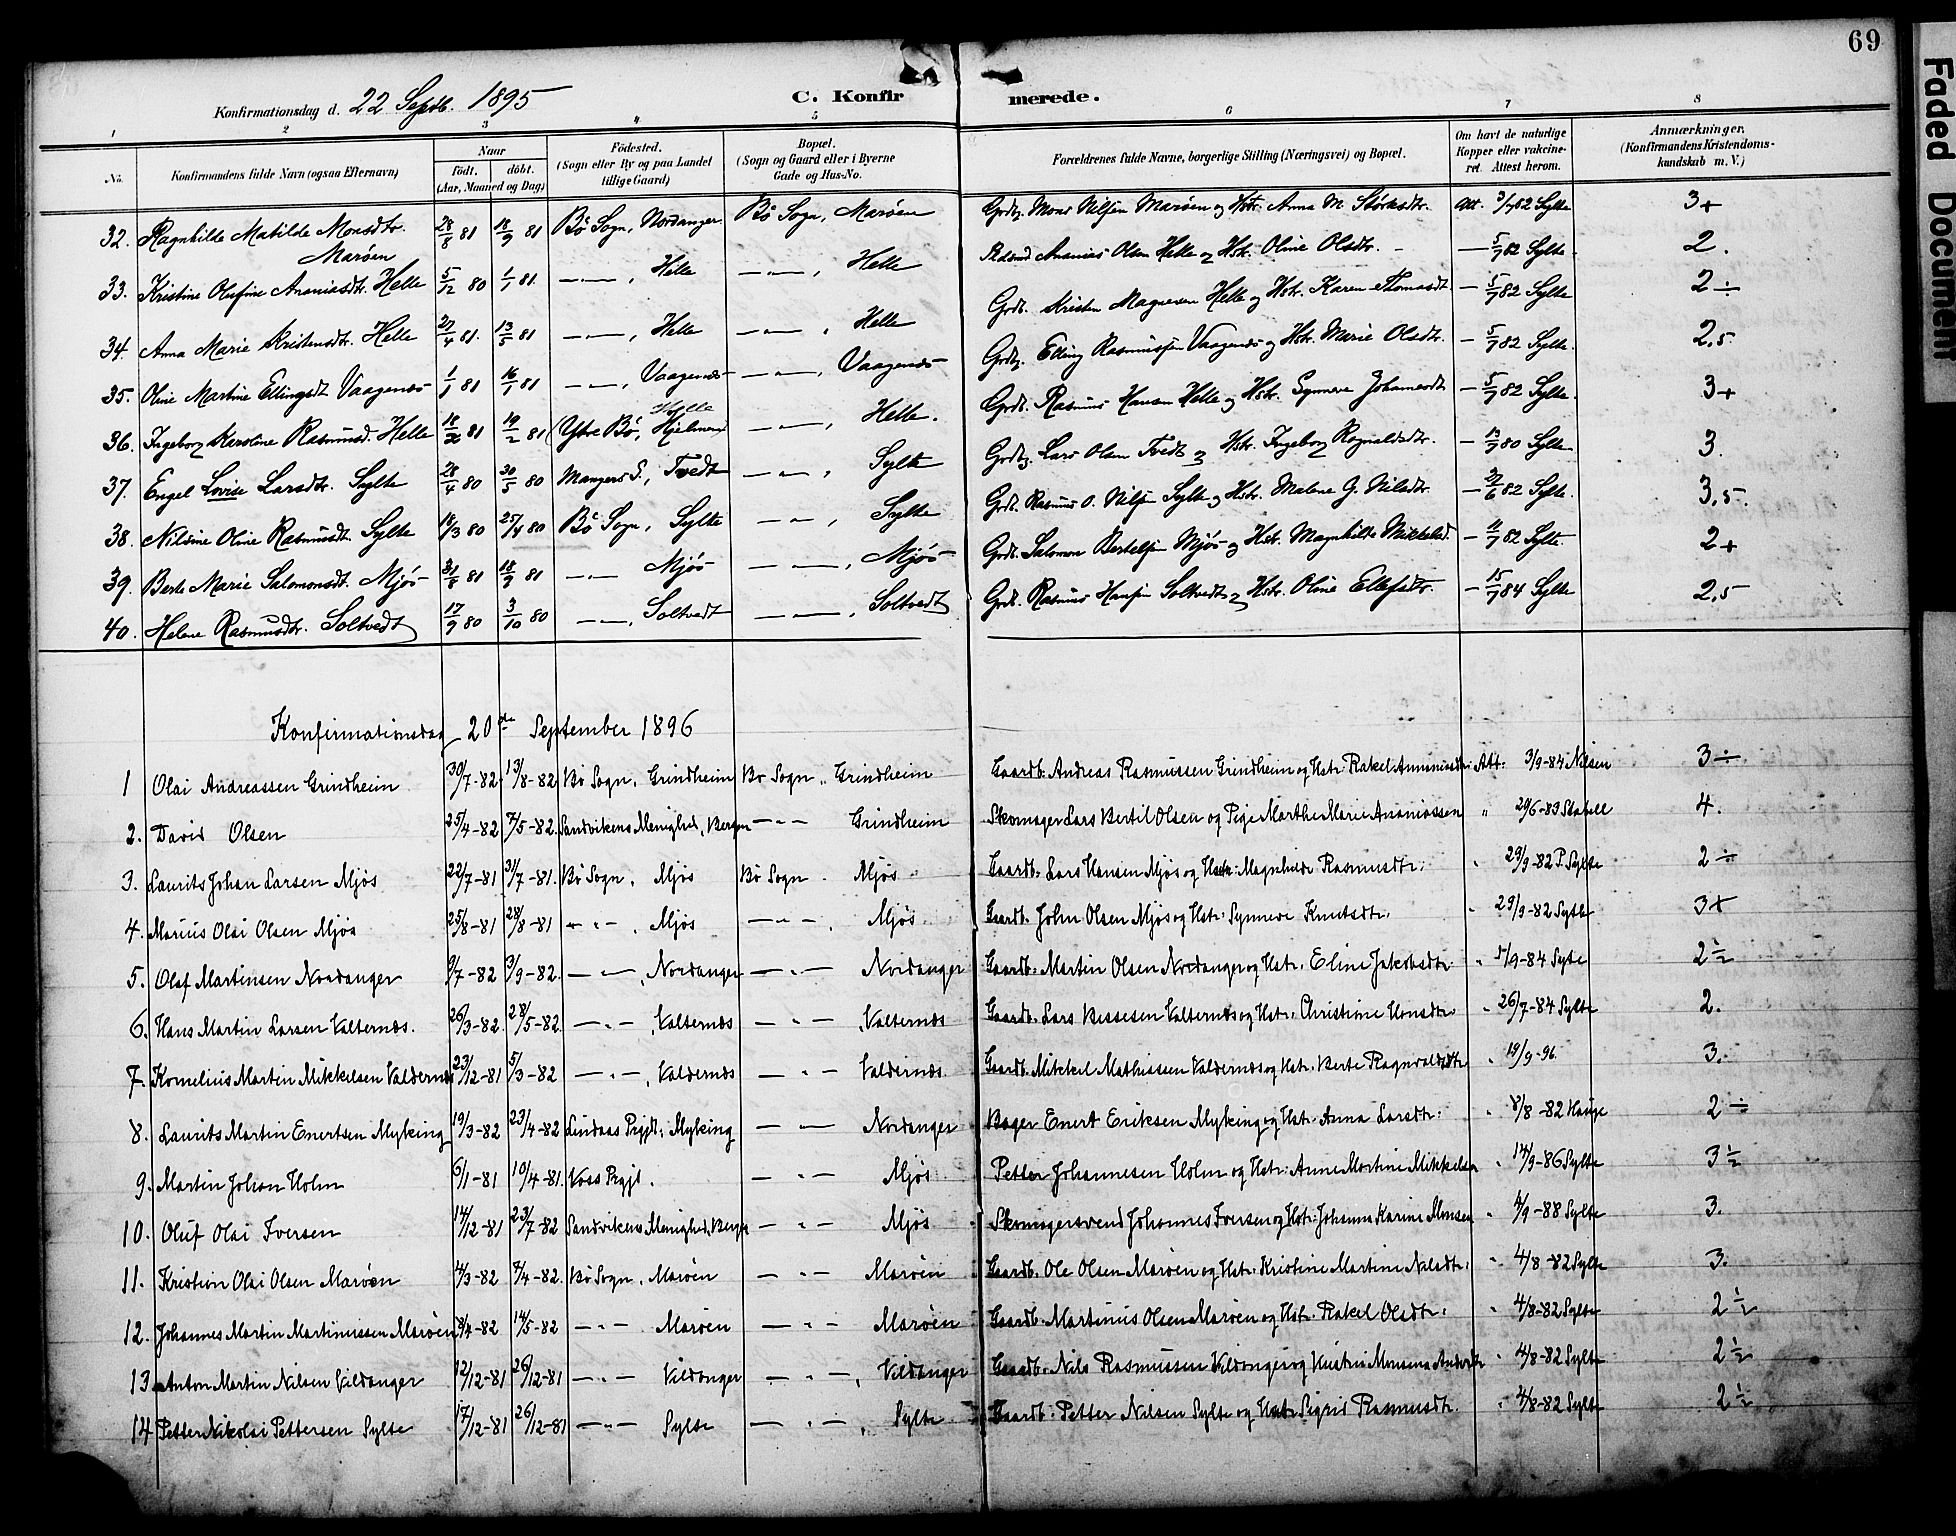 69
Faded Document
Konfirmationsdag d. 22 Septb. 1895
C. Konfirmerede.
1 2 3 4 5 6 7 8
No. Konfirmandens fulde Navn (ogsaa Efternavn) Naar født. døbt. (Aar, Maaned og Dag) Fødested. (Sogn eller By og paa Landet tillige Gaard) Bopæl. (Sogn og Gaard eller i Byerne Gade og Hus-No. Forældrenes fulde Navne, borgerlige Stilling (Næringsvei) og Bopæl. Om havt de naturlige Kopper eller vakcineret. Attest herom. Anmærkninger. (Konfirmandens Kristendomskundskab m. V.)
32. Ragnhilde Matilde Monsdtr. Marøen 28/8 81 18/9 81 Bø Sogn, Nordanger Bø Sogn, Marøen Grdbr. Mons Nilsen Marøen og Hstr. Anna M. Størksdtr. Att. 3/7 82 Sylte 3+
33. Kristine Olufine Ananiasdtr. Helle 5/12 80 1/1 81. —"—, Helle —"—, Helle Ananias Olsen Helle og Hstr. Oline Olsdtr. — 5/7 82 Sylte 2.
34. Anna Marie Kristensdtr. Helle 27/4 81. 13/5 81 —"—, Helle —"—, Helle Grdb. Kristen Magnesen Helle og Hstr. Karen Thomasdt. — 5/7 82 Sylte 2÷
35. Oline Martine Ellingsdt Vaagenæs 1/1 81 16/1 81 —"—, Vaagenæs —"—, Vaagenæs Grdb. Elling Rasmussen Vaagenæs og Hstr. Marie Olsdtr. — 5/7 82 Sylte. 2,5
36. Ingeborg Karoline Rasmusd. Helle 81 19/2 81 (Ytre Bø, Helle —"—, Helle. Grdb. Rasmus Hansen Helle og Hstr. Synneve Johannesdt. — 5/7 82 Sylte. 3+
37. Engel Lovise Larsdtr. Sylte 28/4 80 30/5 80 Mangers S., Tvedt —"—, Sylte Grdb. Lars Olsen Tvedt og Hstr. Ingeborg Ragnaldsdtr. — 13/9 80 Sylte 3.
38. Nilsine Oline Rasmusdt. Sylte 18/3 80 25/4 80 Bø Sogn, Sylte —"—, Sylte Grdb. Rasmus O. Nilsen Sylte og Hstr. Malene G. Nilsdtr. — 21/6 82 Sylte. 3,5.
39. Berte Marie Salomonsdt. Mjøs 31/8 81 18/9 81 —"— Mjøs —"—, Mjøs Grdb. Salomon Bertelsen Mjøs og Hstr. Magnhilde Mikkelsd. — 11/7 82 Sylte. 2+
40. Helene Rasmusdtr. Soltvedt 17/9 80 3/10 80 —"—, Soltvedt —"—, Soltvedt Grdb. Rasmus Hansen Soltvedt og Hstr. Oline Ellefsdtr. — 15/7 84 Sylte 2,5
Konfirmationsdag 20de September 1896
1 Olai Andreassen Grindheim 30/7-82 13/8-82 Bø Sogn, Grindheim Bø Sogn, Grindheim Gaardb. Andreas Rasmussen Grindheim og Hstr. Rakel Ananiasdtr. Att. 3/9-84 Nilsen 3÷
2. David Olsen 25/4-82 7/5-82. Sandvikens Menighed, Bergen —"— Grindheim Skomager Lars Bertil Olsen og Pige Marthe Marie Ananiassen " 29/6-83 Stabell 4.
3. Laurits Johan Larsen Mjøs 22/7-81 31/7-81. Bø Sogn, Mjøs Bø Sogn. Mjøs Gaardb. Lars Hansen Mjøs og Hstr. Magnhilde Rasmusdtr. " 29/9-82 P. Sylte 2÷
4. Marius Olai Olsen Mjøs 25/8-81 28/8-81 —"—, Mjøs —"—, Mjøs Gaardb. John Olsen Mjøs og Hstr. Synneve Knutsdtr. " 29/9-82 Sylte 3+
5. Olaf Martinsen Nordanger 9/7-82 3/9-82. —"—, Nordanger —"— Nordanger Gaardb. Martin Olsen Nordanger og Hstr. Eline Jakobsdtr. " 5/9-84 Sylte 2½
6. Hans Martin Larsen Valternæs. 26/3-82. 28/5-82. —"—, Valternæs —"—, Valternæs Gaardb. Lars Bessesen Valternæs og Hstr. Christine Hansdtr. " 26/7-84 Sylte 2.
7. Kornelius Martin Mikkelsen Valdernæs 23/12-81 5/3-82 —"—, Valdernæs —"— Valdernæs. Gaardb. Mikkel Mathiassen Valdernæs og Hstr. Berte Ragnvaldsdtr. " 19/9-96. 3.
8. Laurits Martin Enertsen Myking 19/3-82 23/4-82 Lindaas Prgjld, Myking —"— Nordanger Bager Enert Eriksen Myking og Hstr. Anna Larsdtr. " 8/8-82 Hauge 2÷
9. Martin Johan Holm 6/1-81 10/4-81. Voss Prgjl. —"— Mjøs Petter Johannesen Holm og Hstr. Anne Martine Mikkelsen " 14/9-86 Sylte 3½
10. Oluf Olai Iversen 14/12-81 23/7-82 Sandvikens Menighed, Bergen —"— Mjøs Skomagersvend Johannes Iversen og Hstr. Johanna Karine Monsen " 4/9-88 Sylte 3.
11. Kristian Olai Olsen Marøen 4/3-82 7/4-82. Bø Sogn, Marøen —"— Marøen Gaardb. Ole Olsen Marøen og Hstr. Kristine Martine Nilsdtr. " 4/8-82 Sylte 3.
12. Johannes Martin Martinussen Marøen 9/4-82 14/5-82 —"— Marøen —"— Marøen Gaardb. Martinus Olsen Marøen og Hstr. Rakel Olsdtr. " 4/8-82 Sylte 2½
13 Anton Martin Nilsen Vildanger 12/12-81 26/12-81 —"— Vildanger —"—, Vildanger Gaardb. Nils Rasmussen Vildanger og Hustru Monsena " 4/8-82 Sylte 2½
14 Petter Nikolai Pettersen Sylte 17/12-81 26/12-81 —"— Sylte —"—, Sylte Gaardb. Petter Nilsen Sylte og Hstr. Sigrid Rasmusdtr. " 4/8-82 Sylte 2½